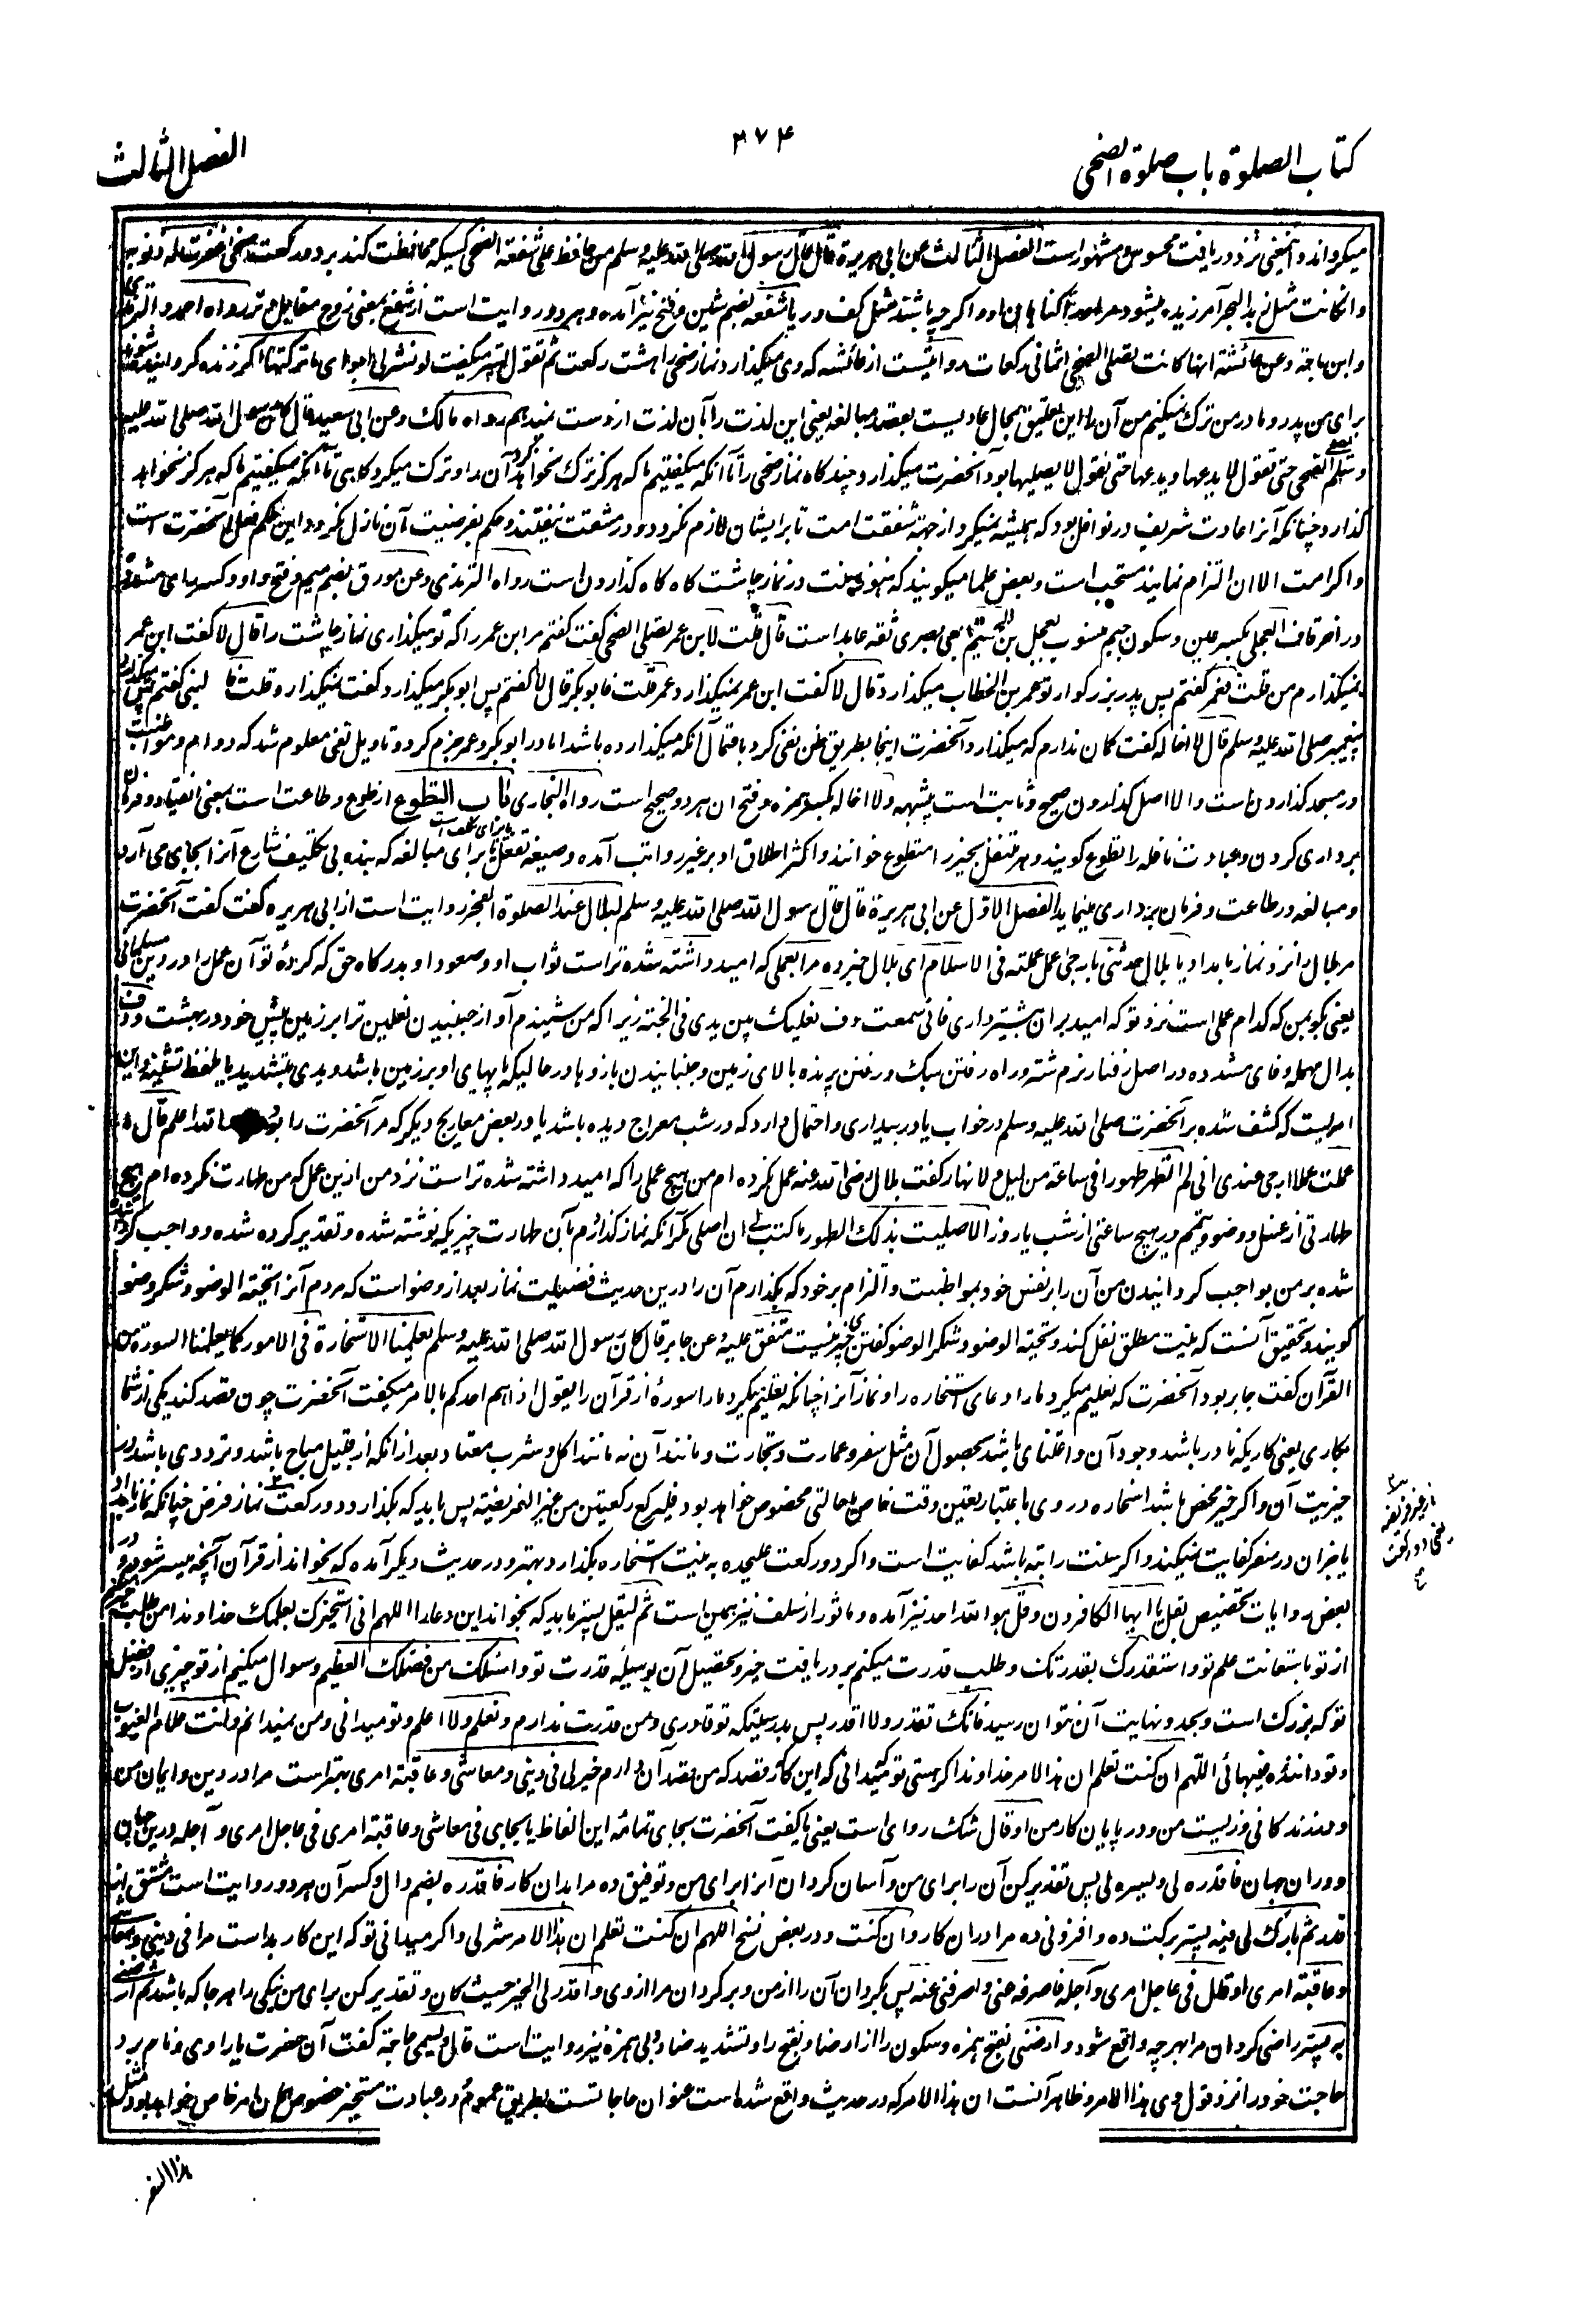 کتاب الصلوة باب صلوة الضحی
۳۷۴
الفصل الثالث
میگرداند و اینمعنی نزد دریافت محسوس و مشهور است الفصل الثالث عن ابی هریرة قال قال رسول الله صلی الله علیه وسلم من حافظ علی شفعة الضحی کسیکه محافظت کند بر دو رکعت ضحی غفرت له ذنوبه
وان کانت مثل زبد البحر آمرزیده میشود مر او را گناهان او و اگر چه باشند مثل کف دریا شفعه بضم شین و فتح نیز آمده و هر دو روایت است از شفع بمعنی زوج مقابل وتر رواه احمد و الترمذی
و ابن ماجة وعن عائشة انها کانت تصلی الضحی ثمانی رکعات روایتست از عائشه که وی میگذارد نماز ضحی را هشت رکعت ثم تقول پستر میگفت لو نشر لی ابوای ما ترکتها اگر زنده گردانیده شوند
برای من پدر و مادر من ترک نمیکنم من آن را این تعلیق بمحال عادیست بقصد مبالغه یعنی این لذت را بآن لذت از دست ندهم رواه مالک وعن ابی سعید قال کان رسول الله صلی الله علیه
وسلم یصلی الضحی حتی نقول لا یدعها و یدعها حتی نقول لا یصلیها بود آنحضرت میگذارد چند گاه نماز ضحی را تا آنکه میگفتیم ما که هرگز ترک نخواهد کرد آن را و ترک میکرد گاهی تا آنکه میگفتیم ما که هرگز نخواهد
گذارد چنانکه آنرا عادت شریف در نوافل بود که همیشه نمیکرد از جهة شفقت امت تا بر ایشان لازم نگردد و در مشقت نیفتند و حکم بفرضیت آن نازل نگردد و این حکم فعل آنحضرت است
و اگر امت الا ان التزام نمایند مستحب است و بعض علما میگویند که هنوز سنت در نماز چاشت گاه گاه گذاردن است رواه الترمذی وعن مورق بضم میم و فتح واو و کسر رای مشدده
در آخر قاف العجلی بکسر عین و سکون جیم منسوب بعجل بن لجیم تابعی بصری ثقه عابد است قال قلت لابن عمر تصلی الضحی گفت گفتم مر ابن عمر را که تو میگذاری نماز چاشت را قال لا گفت ابن عمر
نمیگذارم من قلت فعمر گفتم پس پدر بزرگوار تو عمر بن الخطاب میگذارد قال لا گفت ابن عمر نمیگذارد عمر قلت فابو بکر قال لا گفتم پس ابو بکر میگذارد گفت نمیگذارد قلت فالنبی گفتم پس میگذارد
پیغمبر صلی الله علیه وسلم قال لا اخاله گفت گمان ندارم که میگذارد آنحضرت اینجا بطریق ظن نفی کرد باحتمال آنکه میگذارده باشد اما در ابو بکر و عمر جزم کرد و تاویل نفی معلوم شد که دوام و مواظبت
در مسجد گذاردن است والا اصل گذاردن صحیح و ثابت است بیشبهه ولا اخاله بکسر همزه و فتح ان هر دو صحیح است رواه البخاری باب التطوع از طوع و طاعت است بمعنی انقیاد و فرمان
برداری کردن و عبادت نافله را تطوع گویند و هر متنفل بخیر را متطوع خوانند و اکثر اطلاق او بر غیر رواتب آمده و صیغه تفعل یا برای تکلف است یا برای مبالغه که بنده بی تکلیف شارع آنرا بجای می آرد
و مبالغه در طاعت و فرمان برداری مینماید الفصل الاول عن ابی هریرة قال قال رسول الله صلی الله علیه وسلم لبلال عند الصلوة الفجر روایت است از ابی هریره گفت گفت آنحضرت
مر بلال را نزد نماز بامداد یا بلال حدثنی بارجی عمل عملته فی الاسلام ای بلال خبر ده مرا بعملی که امید داشته شده تر است ثواب او و صعود او بدرگاه حق که کردهٔ تو آن عمل را در دین مسلمانی
یعنی بگو بمن که کدام عمل است نزد تو که امید بر ان بیشتر داری فانی سمعت دف نعلیک بین یدی فی الجنة زیرا که من شنیدم آواز جنبیدن نعلین ترا بر زمین پیش خود در بهشت و دف
بدال مهمله و فای مشدده در اصل رفتار نرم شتر و راه رفتن سبک و رفتن پرنده بالای زمین و جنبانیدن بازوها در حالیکه پایهای او بر زمین باشد و یدی بتشدید یا بلفظ تثنیه و این
امریست که کشف شده بر آنحضرت صلی الله علیه وسلم در خواب یا در بیداری و احتمال دارد که در شب معراج دیده باشد یا در بعض معاریج دیگر که مر آنحضرت را بود والله اعلم قال ما
عملت عملا ارجی عندی انی لم اتطهر طهورا فی ساعة من لیل ولا نهار گفت بلال رضی الله عنه عمل نکرده ام من هیچ عملی را که امید داشته شده تر است نزد من ازین عمل که من طهارت نکرده ام هیچ
طهارتی از غسل و وضو و تیمم در هیچ ساعتی از شب یا روز الا صلیت بذلک الطهور ما کتب لی ان اصلی مگر آنکه نماز گذارم بآن طهارت چیزیکه نوشته شده و تقدیر کرده شده و واجب گردانیده
شده بر من بواجب گردانیدن من آن را بر نفس خود بمواظبت و التزام بر خود که بگذارم آن را درین حدیث فضیلت نماز بعد از وضو است که مردم آنرا تحیة الوضو و شکر وضو
گویند و تحقیق آنست که بنیت مطلق نفل کند و تحیة الوضو و شکر الوضو گفتن چیزی نیست متفق علیه وعن جابر قال کان رسول الله صلی الله علیه وسلم یعلمنا الاستخارة فی الامور کما یعلمنا السورة من
القرآن گفت جابر بود آنحضرت که تعلیم میکرد ما را دعای استخاره را و نماز آنرا چنانکه تعلیم میکرد ما را سورهٔ از قرآن را یقول اذا هم احدکم بالامر میگفت آنحضرت چون قصد کند یکی از شما
بکاری یعنی کاریکه نادر باشد وجود آن و اعتنای باشد بحصول آن مثل سفر و عمارت و تجارت و مانند آن نه مانند اکل و شرب معتاد بعد از انکه از قبیل مباح باشد و ترددی باشد در
خیریت آن و اگر خیر محض باشد استخاره در وی باعتبار تعیین وقت خاص یا حالتی مخصوص خواهد بود فلیرکع رکعتین من غیر الفریضة پس باید که بگذارد دو رکعت نماز فرض چنانکه نماز بامداد
یا جز ان در سفر کفایت نمیکند و اگر سنت راتبه باشد کفایت است و اگر دو رکعت علیحده به نیت استخاره بگذارد بهتر و در حدیث دیگر آمده که بخواند از قرآن آنچه میسر شود و در
بعض روایات تخصیص بقل یا ایها الکافرون و قل هو الله احد نیز آمده و ماثور از سلف نیز همین است ثم لیقل پستر باید که بخواند این دعا را اللهم انی استخیرک بعلمک خداوندا من طلب خیر میکنم
از تو باستعانت علم تو و استقدرک بقدرتک و طلب قدرت میکنم بر دریافت خیر و تحصیل آن بوسیلهٔ قدرت تو و اسئلک من فضلک العظیم و سوال میکنم از تو چیزی از فضل
تو که بزرگ است و بحد و نهایت آن نتوان رسید فانک تقدر ولا اقدر پس بدرستیکه تو قادری و من قدرت ندارم و تعلم ولا اعلم و تو میدانی و من نمیدانم وانت علام الغیوب
و تو دانندهٔ غیبهائی اللهم ان کنت تعلم ان هذا الامر خداوندا اگر هستی تو که میدانی که این کار قصد که من قصد آن دارم خیر لی فی دینی و معاشی و عاقبة امری بهتر است مرا در دین و ایمان من
و در زندگانی و زیست من و در پایان کار من او قال شک راوی است یعنی یا گفت آنحضرت بجای تمامهٔ این الفاظ یا بجای فی معاشی و عاقبة امری فی عاجل امری و آجله درین جهان
و در ان جهان فاقدره لی و یسره لی پس تقدیر کن آن را برای من و آسان گردان آنرا برای من و توفیق ده مرا بدان کار فاقدره بضم دال و کسر آن هر دو روایت است مشتق از
قدر ثم بارک لی فیه پستر برکت ده و افزونی ده مرا در ان کار وان کنت و در بعض نسخ اللهم ان کنت تعلم ان هذا الامر شر لی و اگر میدانی تو که این کار بد است مرا فی دینی و معاشی
و عاقبة امری او قال فی عاجل امری و آجله فاصرفه عنی و اصرفنی عنه پس بگردان آن را از من و برگردان مرا از وی و اقدر لی الخیر حیث کان و تقدیر کن برای من نیکی را هر جا که باشد ثم ارضنی
به پستر راضی گردان مرا بهر چه واقع شود و ارضنی بفتح همزه و سکون را از ارضا و بفتح را و تشدید ضاد بی همزه نیز روایت است قال و یسمی حاجته گفت آن حضرت یا راوی و نام برد
حاجت خود را نزد قول وی هذا الامر و ظاهر آنست ان هذا الامر که در حدیث واقع شده است عنوان حاجاتست بطریق عموم و در عبادت مستخیر خصوص هان امر خاص خواهد بود مثل
از غیر فریضه
یعنی دو رکعت
هذا السفر